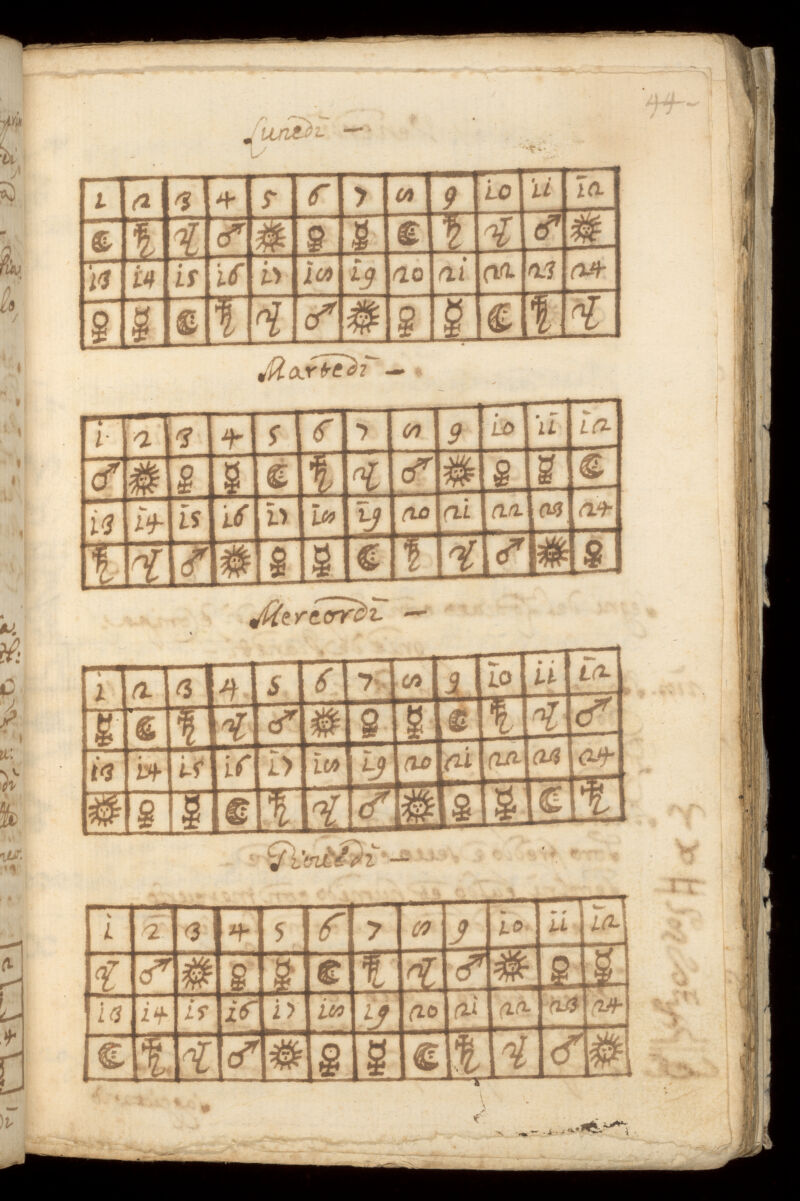 44-
Lunedì —
1 2 3 4 5 6 7 8 9 10 11 12
☾ ♄ ♃ ♂ ☉ ♀ ☿ ☾ ♄ ♃ ♂ ☉
13 14 15 16 17 18 19 20 21 22 23 24
♀ ☿ ☾ ♄ ♃ ♂ ☉ ♀ ☿ ☾ ♄ ♃
Martedì —
1 2 3 4 5 6 7 8 9 10 11 12
♂ ☉ ♀ ☿ ☾ ♄ ♃ ♂ ☉ ♀ ☿ ☾
13 14 15 16 17 18 19 20 21 22 23 24
♄ ♃ ♂ ☉ ♀ ☿ ☾ ♄ ♃ ♂ ☉ ♀
Mercordì —
1 2 3 4 5 6 7 8 9 10 11 12
☿ ☾ ♄ ♃ ♂ ☉ ♀ ☿ ☾ ♄ ♃ ♂
13 14 15 16 17 18 19 20 21 22 23 24
☉ ♀ ☿ ☾ ♄ ♃ ♂ ☉ ♀ ☿ ☾ ♄
Giouedì —
1 2 3 4 5 6 7 8 9 10 11 12
♃ ♂ ☉ ♀ ☿ ☾ ♄ ♃ ♂ ☉ ♀ ☿
13 14 15 16 17 18 19 20 21 22 23 24
☾ ♄ ♃ ♂ ☉ ♀ ☿ ☾ ♄ ♃ ♂ ☉